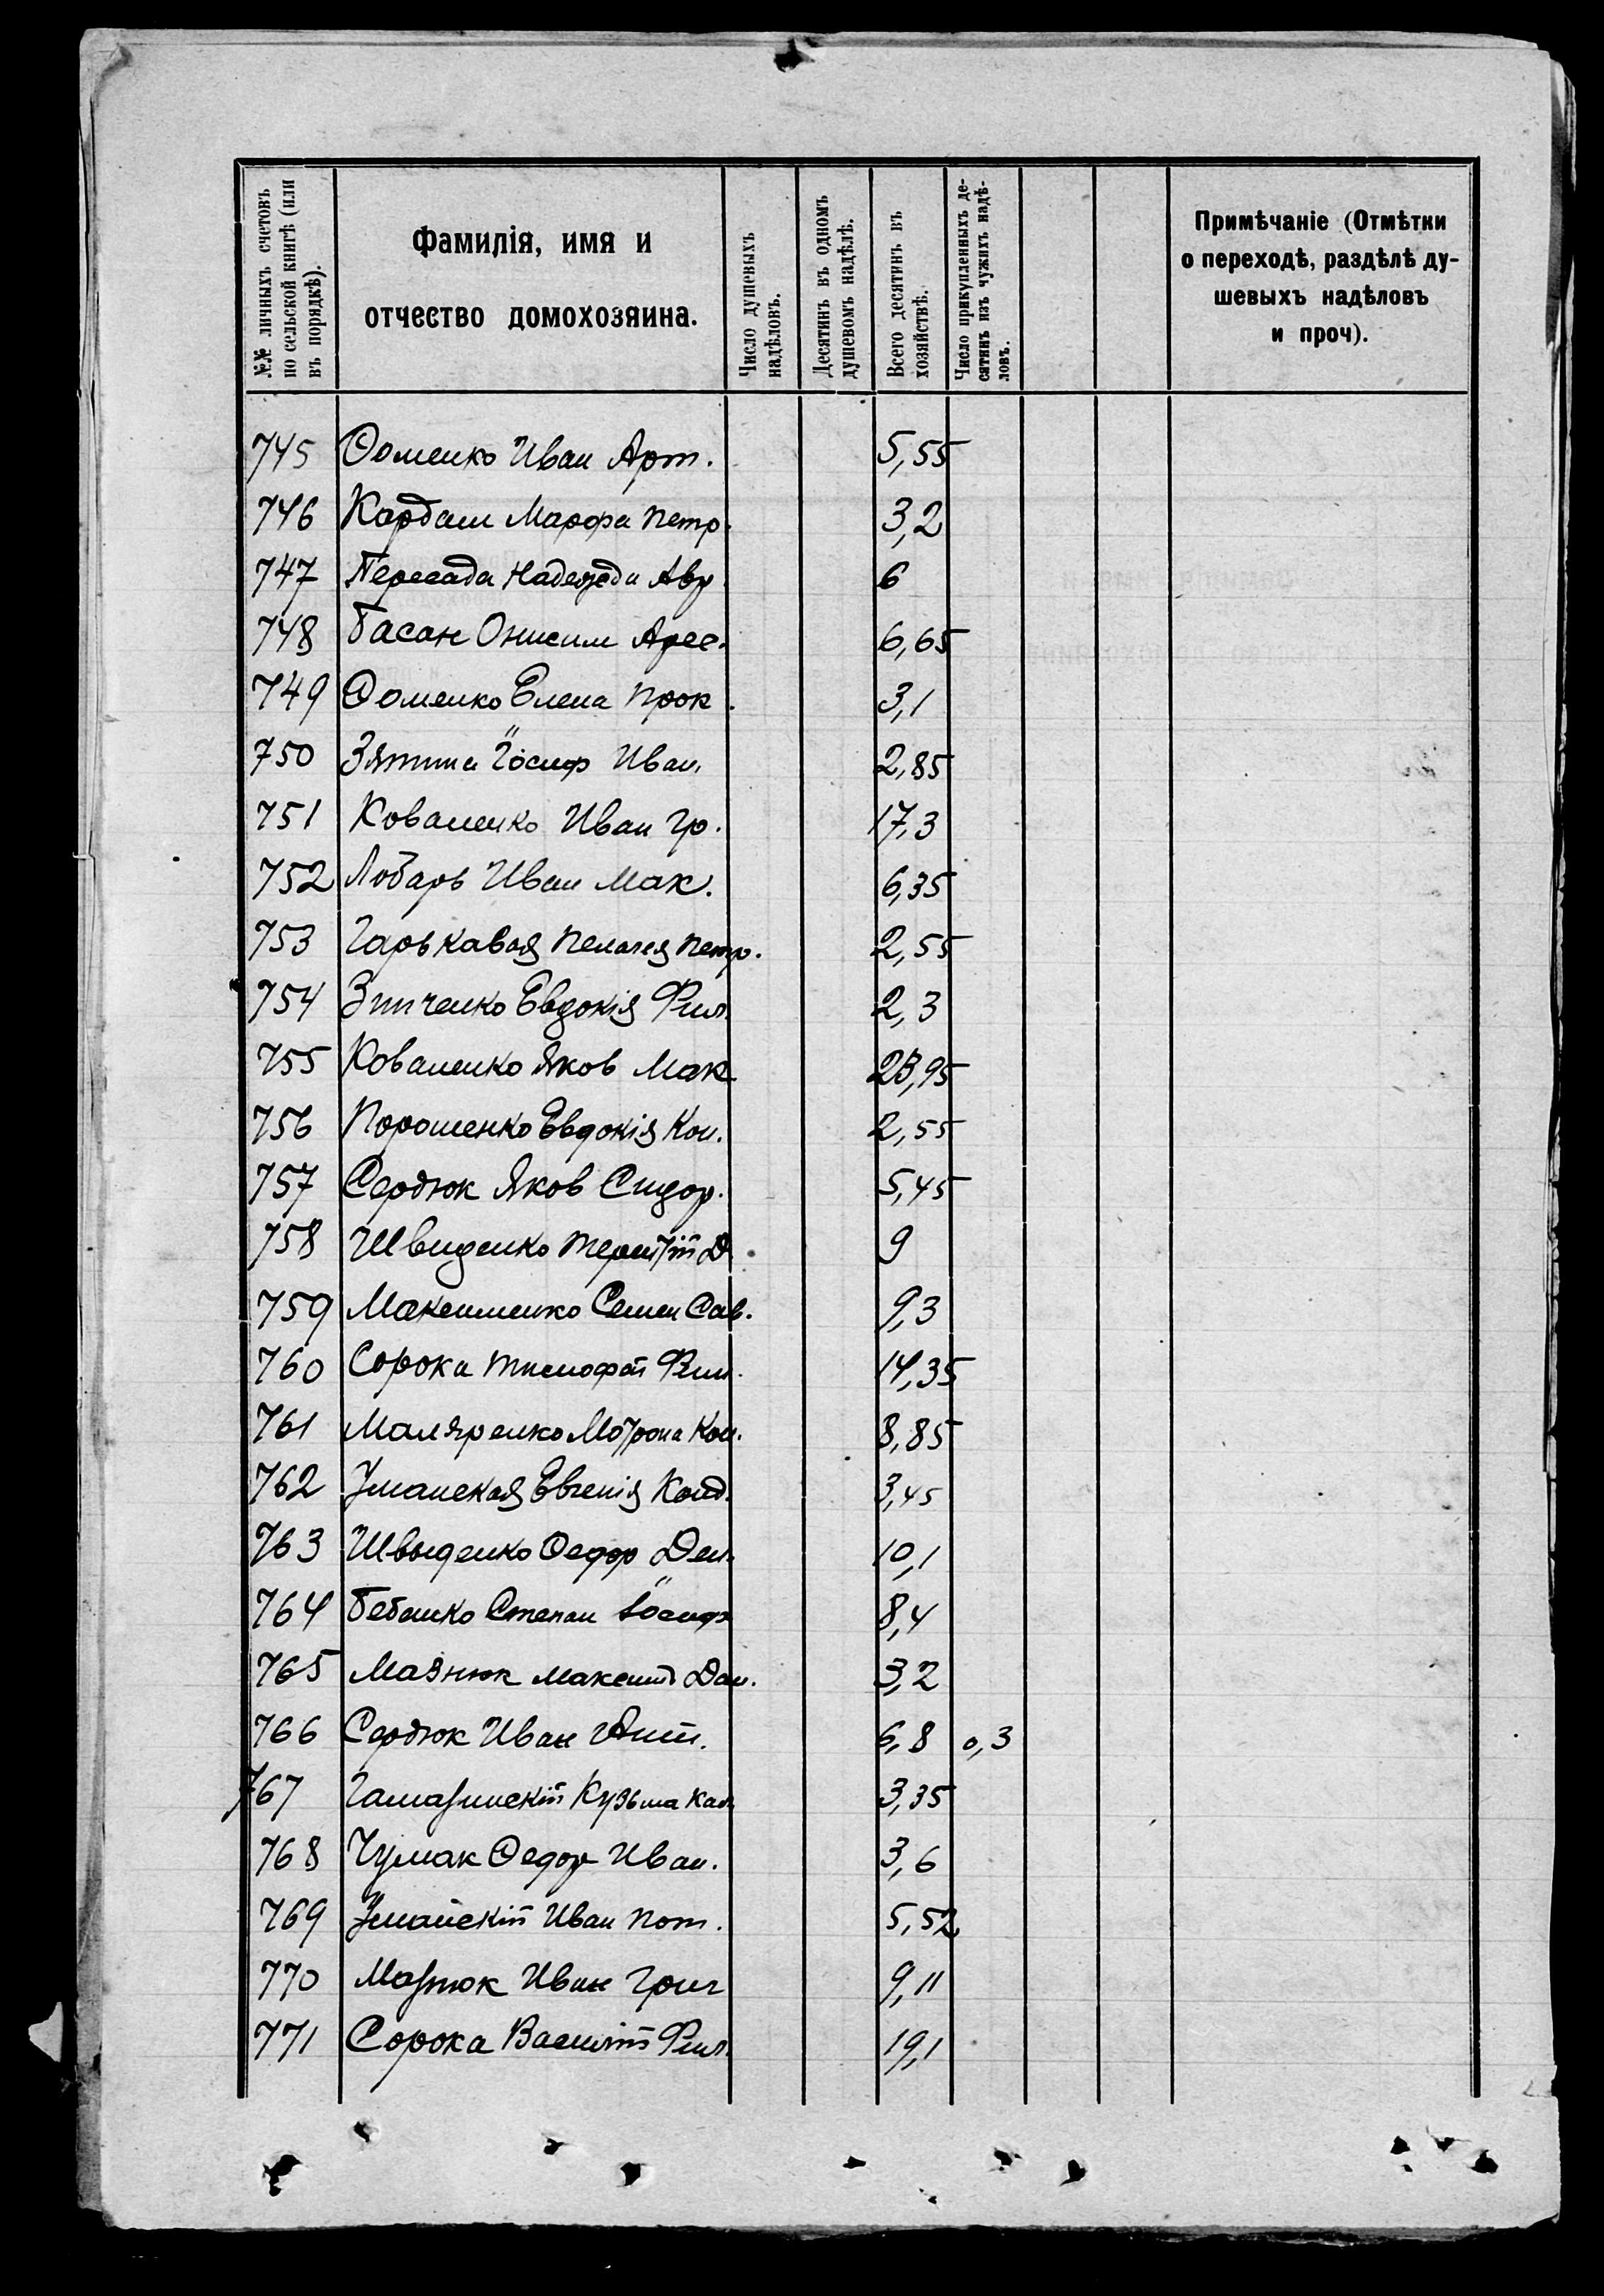 №№ личныхъ счетовъ по сельской книгѣ (или въ порядкѣ).
Фамилія, имя и
отчество домохозяина.
Число душевыхъ надѣловъ.
Десятинъ въ одномъ душевомъ надѣлѣ.
Всего десятинъ въ хозяйствѣ.
Число прикупленныхъ десятинъ изъ чужихъ надѣловъ.
Примѣчаніе (Отмѣтки
о переходѣ, раздѣлѣ ду-
шевыхъ надѣловъ
и проч).
745 Фоменко Иван Арт. 5,55
746 Кардаш Марфа Петр. 3,2
747 Пересада Надежда Авр 6
748 Басан Онисим Арес. 6,65
749 Фоменко Елена Прок. 3,1
750 Іосиф Иван. 2,85
751 Коваленко Иван Гр. 17,3
752 Лобарь Иван Мак. 6,35
753 Гарькавая Пелагея Петр. 2,55
754 Зинченко Евдокія Фил. 2,3
755 Коваленко Яков Мак 23,95
756 Порошенко Евдокія Кон. 2,55
757 Сердюк Яков Сидор. 5,45
758 Швиденко Терентій Д. 9
759 Максименко Семен Сав. 9,3
760 Сорока Тимофей Фил. 14,35
761 Маляренко Мотрона Кон. 8,85
762 Уманская Евгенія Конд. 3,45
763 Швыденко Федор Дем. 10,1
764 Бебешко Степан Іосиф 8,4
765 Мазнюк Максим Дан. 3,2
766 Сердюк Иван Ант. 6,8 0,3
767 Кузьма 3,35
768 Чумак Федор Иван. 3,6
769 Уманскій Иван Пот. 5,52
770 Мазнюк Иван Григ 9,11
771 Сорока Василій Фил. 19,1